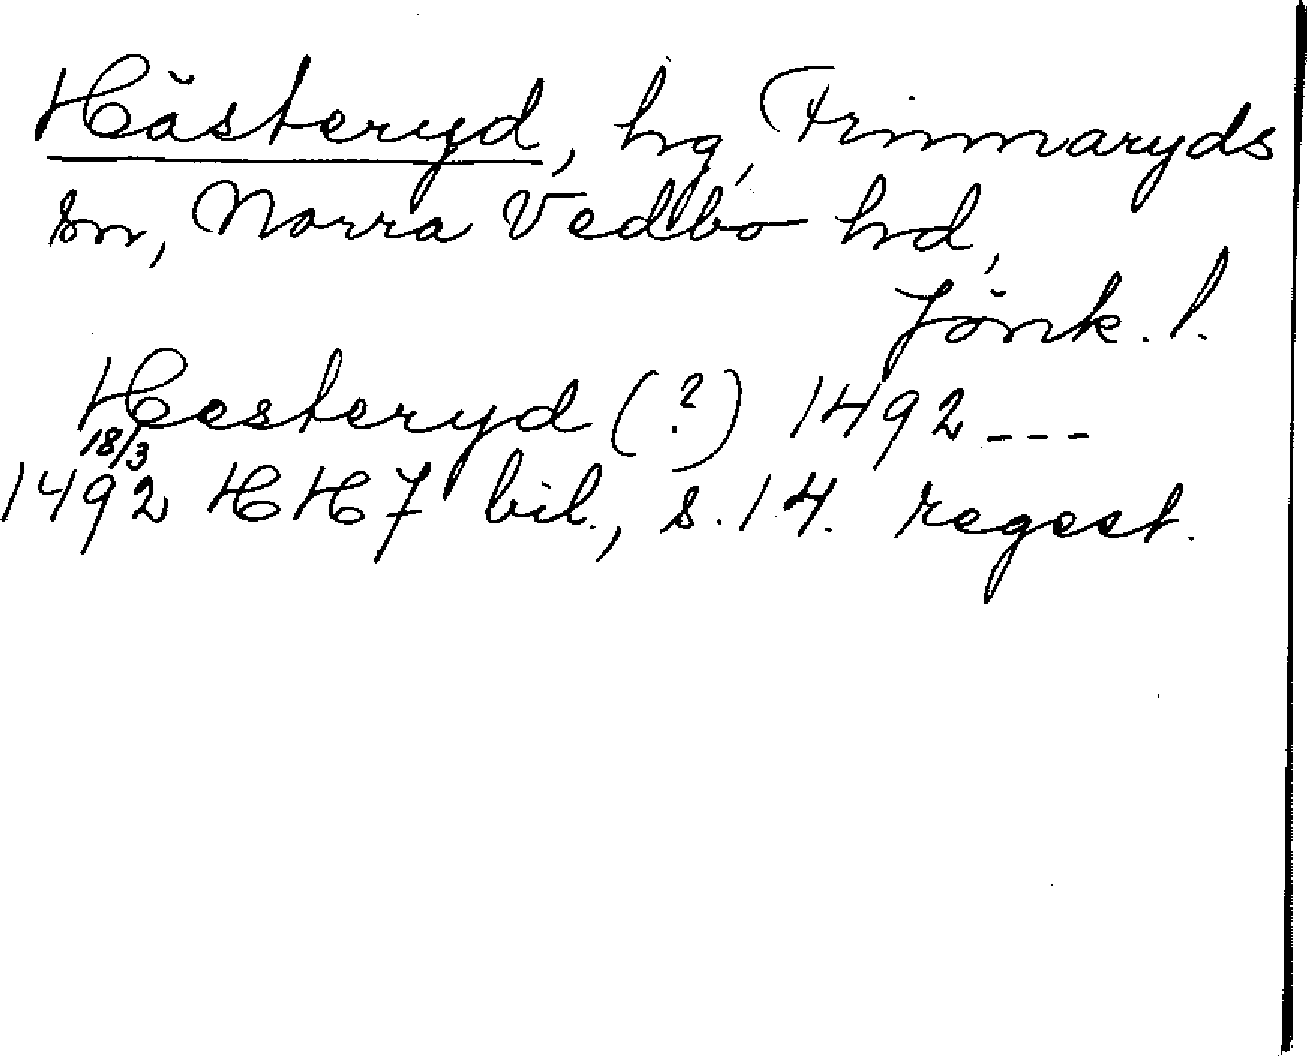 Hästeryd, hg, Frinnaryds
sn, Norra Vedbo hd,
Jönk. l.
Hesteryd (?) 1492 - - -
18/3
1492 HH 7 bil., s. 14. regest.